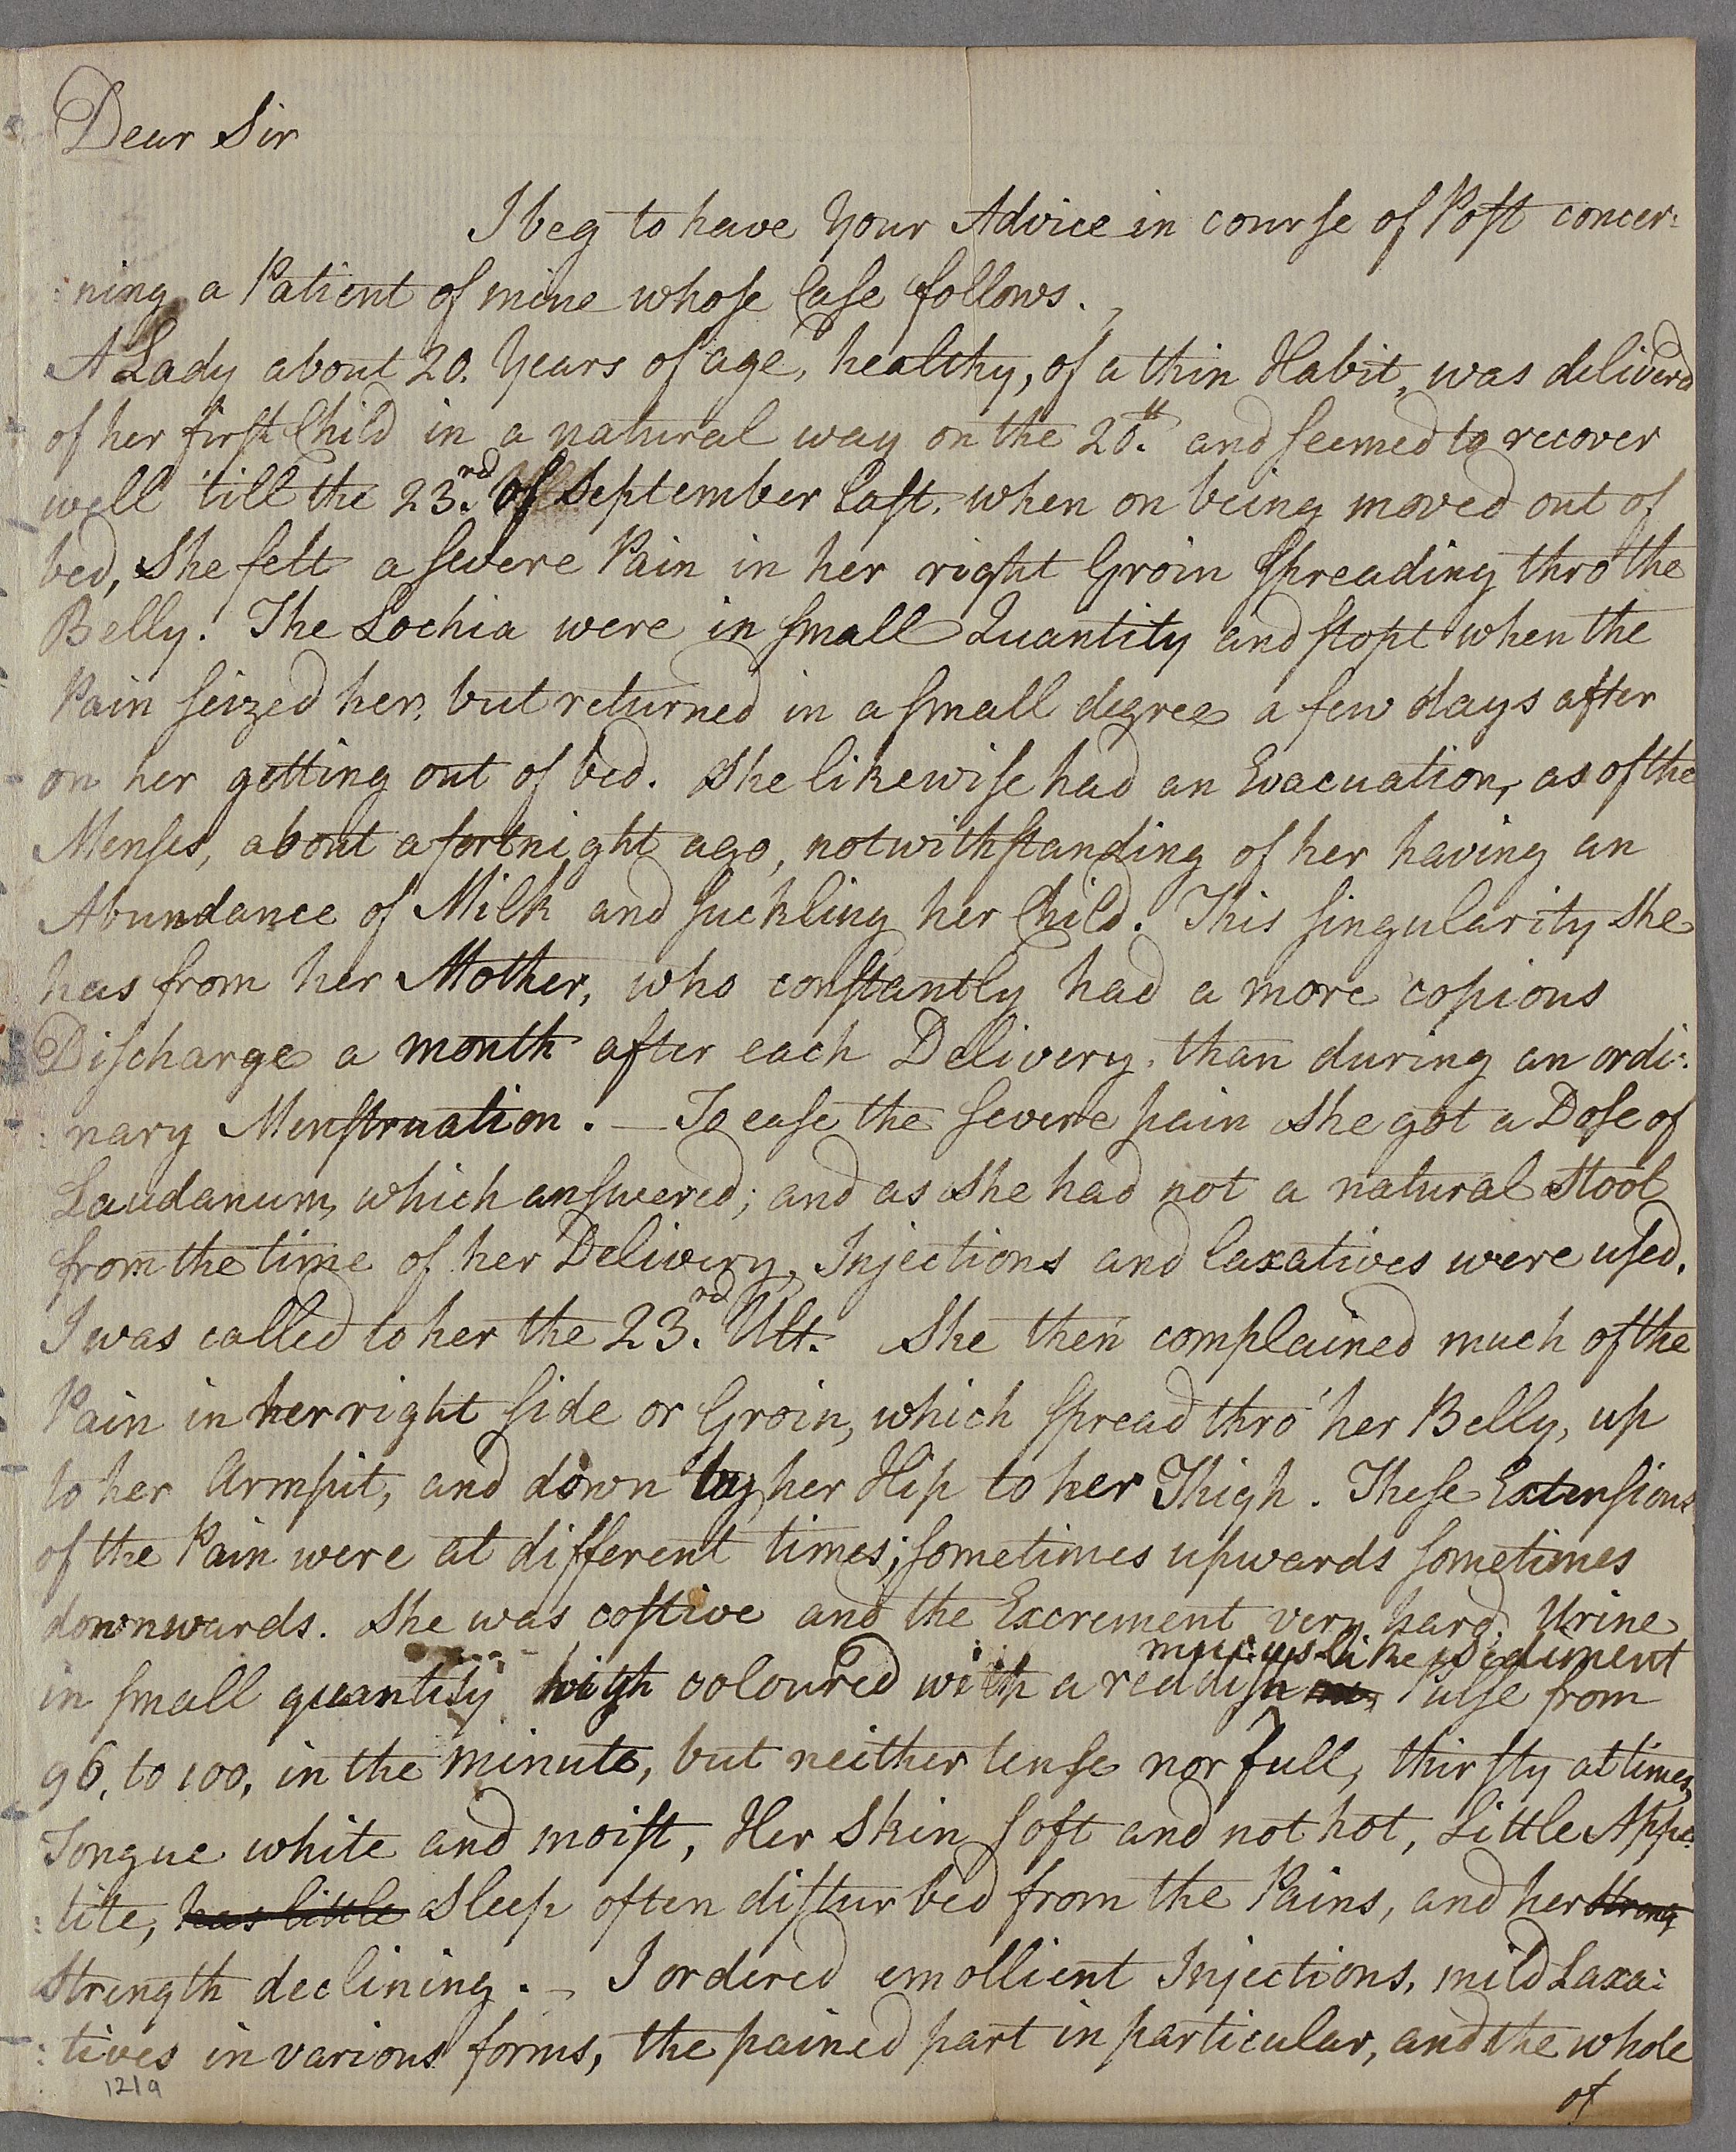 Dear Sir
I beg to have Your Advice in courſe of Poſt concer:
:ning a Patient of mine whoſe Caſe follows.
A Lady about 20. Years of age, healthy, of a thin Habit, was deliverd
of her firſt Child in a natural way on the 20.th and ſeemed to recover
well 'till the 23.rd of September laſt. when on being moved out of
bed, She felt a ſevere Pain in her right Groin ſpreading thro the
Belly. The Lochia were in ſmall Quantity and ſtopt when the
Pain ſeized her, but returned in a ſmall degree a few days after
on her getting out of bed. She likewiſe had an Evacuation, as of the
Menſes, about a fortnight ago, notwithſtanding of her having an
Abundance of Milk and ſuckling her Child. This ſingularity She
has from her Mother, who conſtantly had a more copious
Diſcharge a month after each Delivery, than during an ordi:
:nary Menſtruation. — To eaſe the ſevere pain She got a Doſe of
Laudanum, which anſwered; and as She had not a natural Stool
from the time of her Delivery, Injections and Laxatives were uſed.
I was called to her the 23.rd Ult. She then complained much of the
Pain in her right ſide or Groin, which ſpread thro' her Belly, up
to her Armpit, and down by her Hip to her Thigh. Theſe Extenſions
of the Pain were at different times; ſometimes upwards ſometimes
downwards. She was coſtive and the Excrement very hard. Urine
mucus-like sediment
in ſmall quantity high coloured with a reddish Pulſe from
96, to 100, in the minute, but neither tenſe nor full, thirſty at times,
Tongue white and moiſt, Her Skin ſoft and not hot, Little Appe:
:tite, has little Sleep often diſturbed from the Pains, and her Streng
Strength declining. — I ordered emollient Injections, mild Laxa:
:tives in various forms, the pained part in particular, and the whole
of
121a